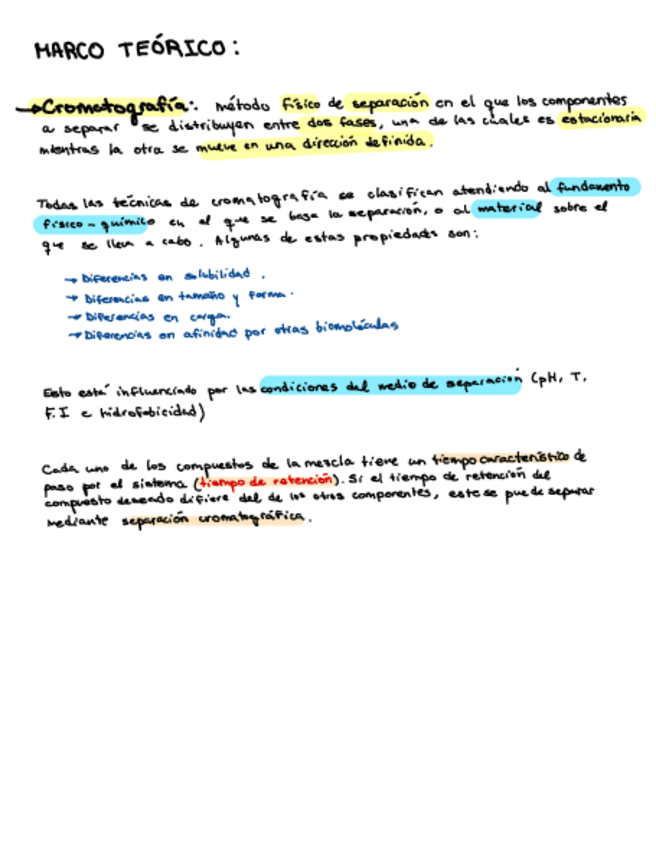 MARCO TEÓRICO:
→ Cromatografía: método físico de separación en el que los componentes
a separar se distribuyen entre dos fases, una de las cuales es estacionaria
mientras la otra se mueve en una dirección definida.
Todas las técnicas de cromatografía se clasifican atendiendo al fundamento
físico-químico en el que se basa la separación, o al material sobre el
que se lleva a cabo. Algunas de estas propiedades son:
→ Diferencias en solubilidad.
→ Diferencias en tamaño y forma.
→ Diferencias en carga.
→ Diferencias en afinidad por otras biomoléculas
Esto está influenciado por las condiciones del medio de separación (pH, T,
F.I e hidrofobicidad)
Cada uno de los compuestos de la mezcla tiene un tiempo característico de
paso por el sistema (tiempo de retención). Si el tiempo de retención del
compuesto deseado difiere del de los otros componentes, este se puede separar
mediante separación cromatográfica.